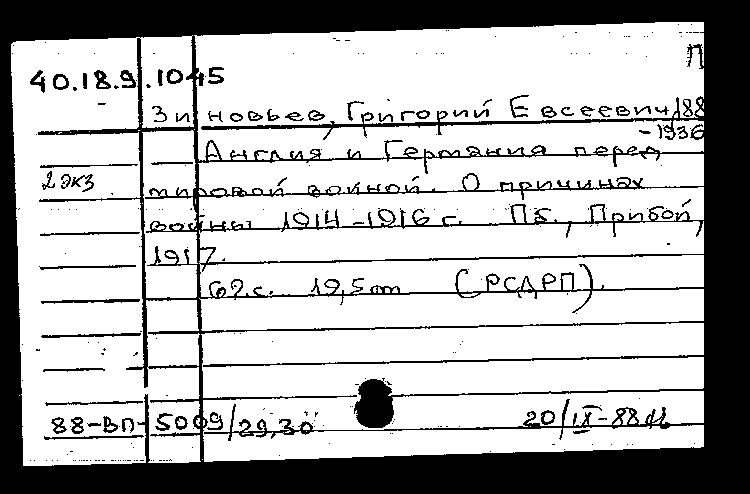 П
40.18.9.1045
Зиновьев, Григорий Евсеевич, 188
-1936
Англия и Германия перед
2 экз мировой войной. О причинах
войны 1914-1916 г. Пб., Прибой,
1917.
69.с. 19,5 cm (РСДРП).
88-ВП-5009/29,30 20/IX-88